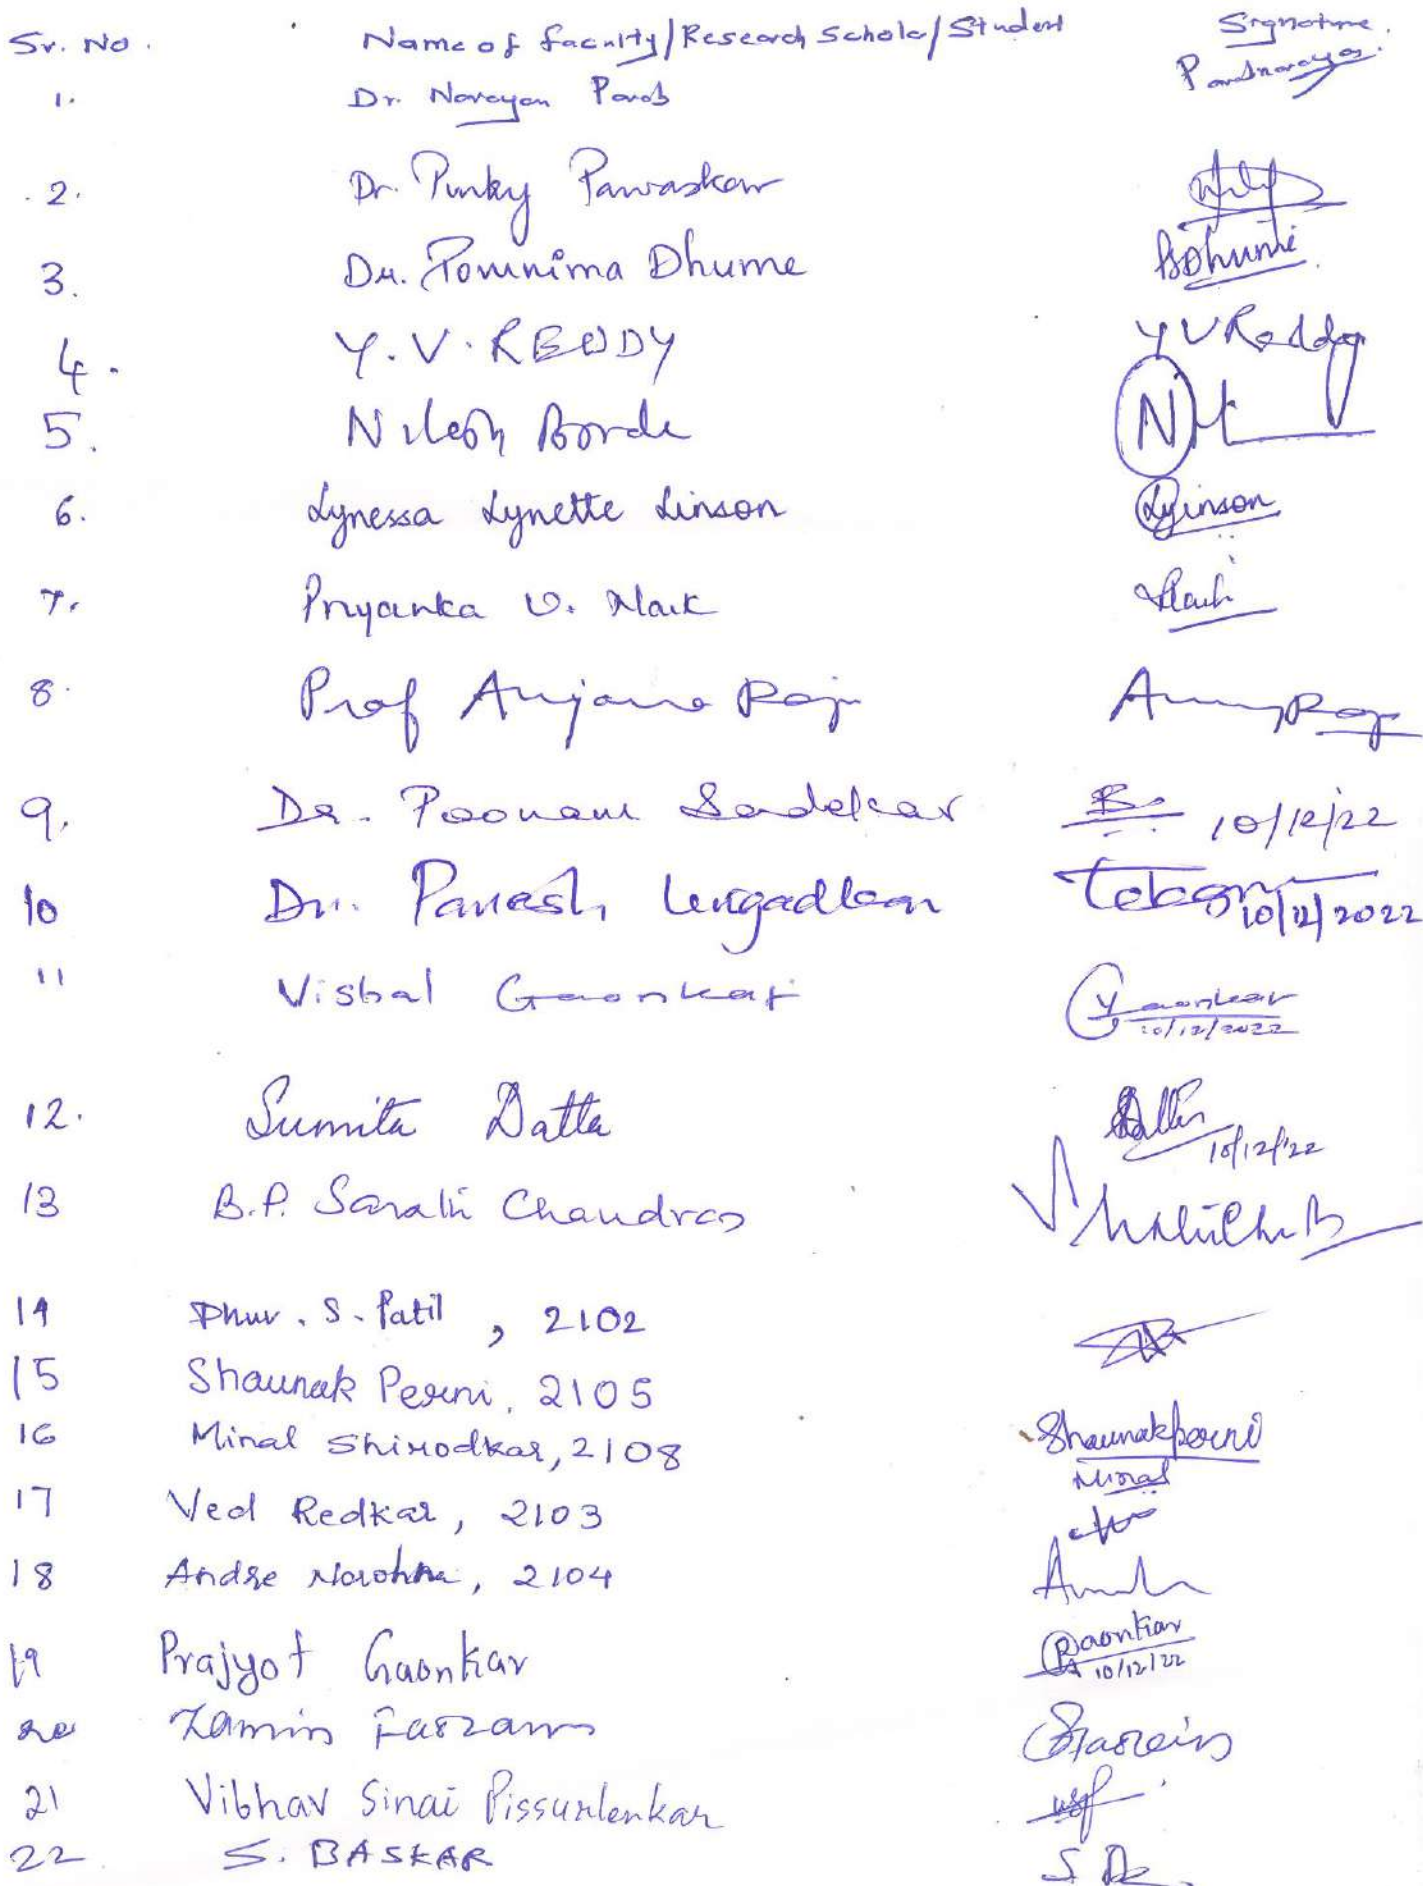 Sr. No. Name of Faculty/Research Scholar/Student Signature.
1. Dr. Narayan Parab
2. Dr. Punky Pawaskar
3. Dr. Pournima Dhume
4. Y.V. REDDY YVReddy
5. Nilesh Borde
6. Lynessa Lynette Linson Linson
7. Priyanka V. Naik Naik
8. Prof Anjana Raju
9. Dr. Poonam Sadekar 10/12/22
10 Dr. Paresh Lingadkar 10/12/2022
11 Vishal Gaonkar Gaonkar
10/12/2022
12. Sumita Datta Datta
10/12/22
13 B.P. Sarath Chandran
14 Dhruv. S. Patil, 2102
15 Shaunak Perni, 2105
16 Minal Shirodkar, 2108 Shaunakperni
Minal
17 Ved Redkar, 2103
18 Andre Noronha, 2104
19 Prajyot Gaonkar Gaonkar
10/12/22
20 Zamin
21 Vibhav Sinai Pissurlenkar
22 S. BASKAR